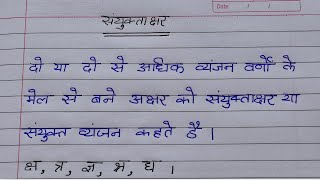 Date
संयुक्ताक्षर
दो या दो से अधिक व्यंजन वर्णो के
मेल से बने अक्षर को संयुक्ताक्षर या
संयुक्त व्यंजन कहते हैं ।
क्ष, त्र, ज्ञ,